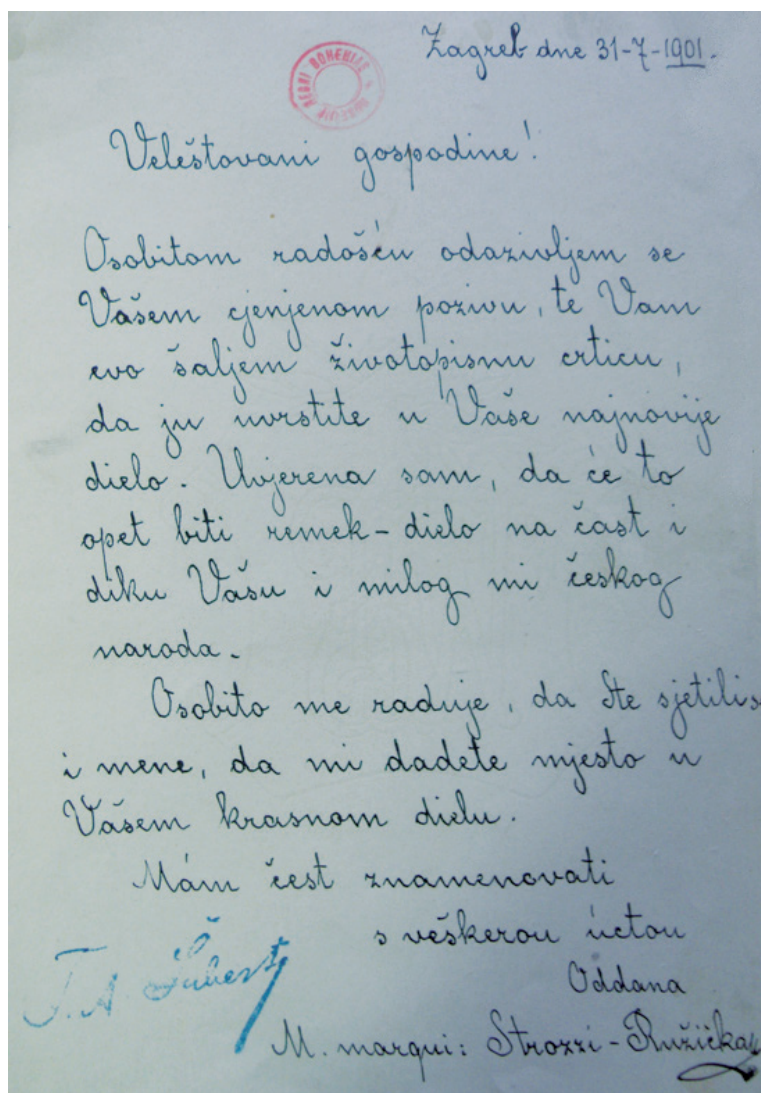 Zagreb dne 31-7-1901.
Veleštovani gospodine!
Osobitom radošću odazivljem se
Vašem cjenjenom pozivu, te Vam
evo šaljem životopisnu crticu,
da ju uvrstite u Vaše najnovije
dielo. Uvjerena sam, da će to
opet biti remek-dielo na čast i
diku Vašu i milog mi českog
naroda.
Osobito me raduje, da ste sjetili
i mene, da mi dadete mjesto u
Vašem krasnom dielu.
Mám čest znamenovati
s veškerou úctou
Oddana
F. A. Šubert
M. marqui: Strozzi-Ružička